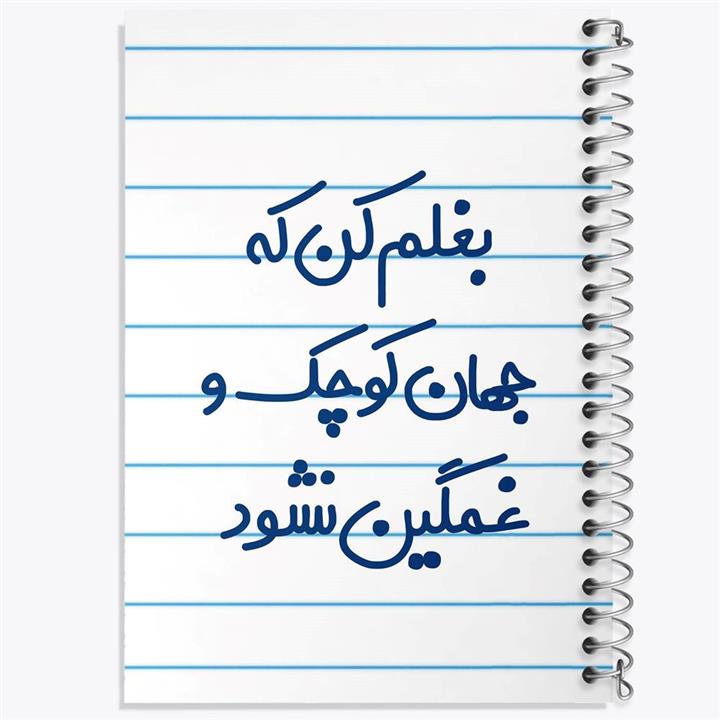 بغلم کن که
جهان کوچک و
غمگین نشود